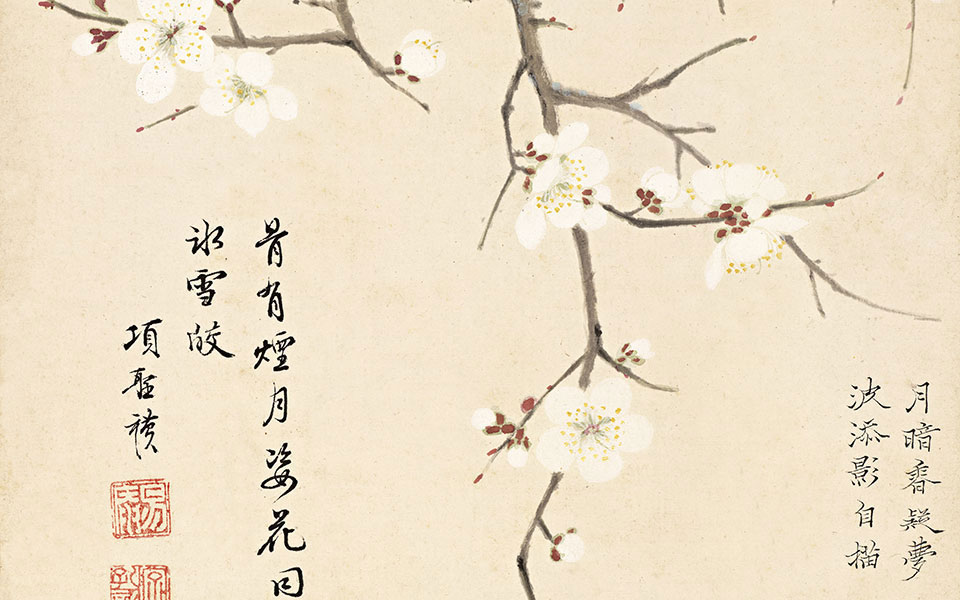 月暗香疑夢
波添影自描
骨有煙月姿花同
氷雪皎
項聖謨